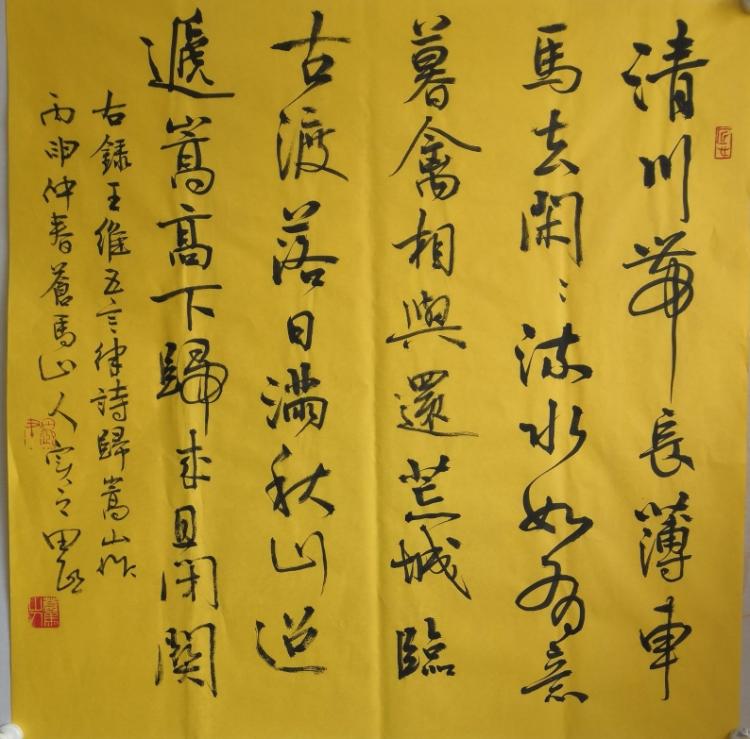 清川帶長薄車
馬去閑〻流水如有意
暮禽相與還荒城臨
古渡落日滿秋山迢
遞嵩高下歸來且閉關
右錄王維五言律詩歸嵩山作
丙申仲春蒼馬山人実之田